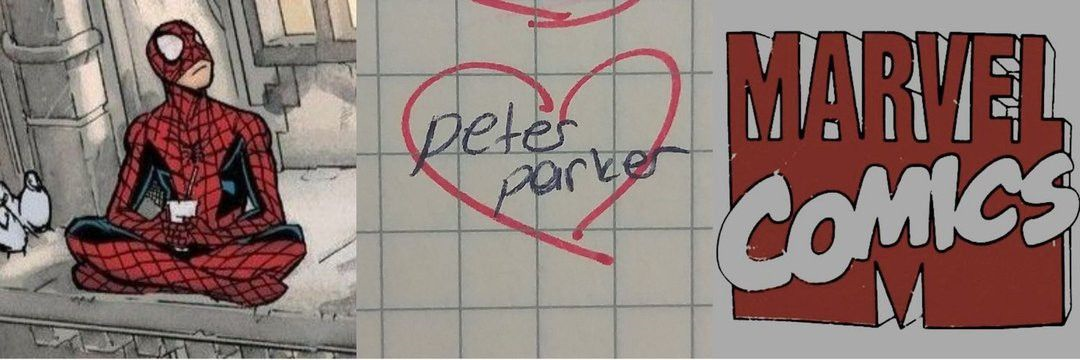 peter
parker
MARVEL
COMICS
M